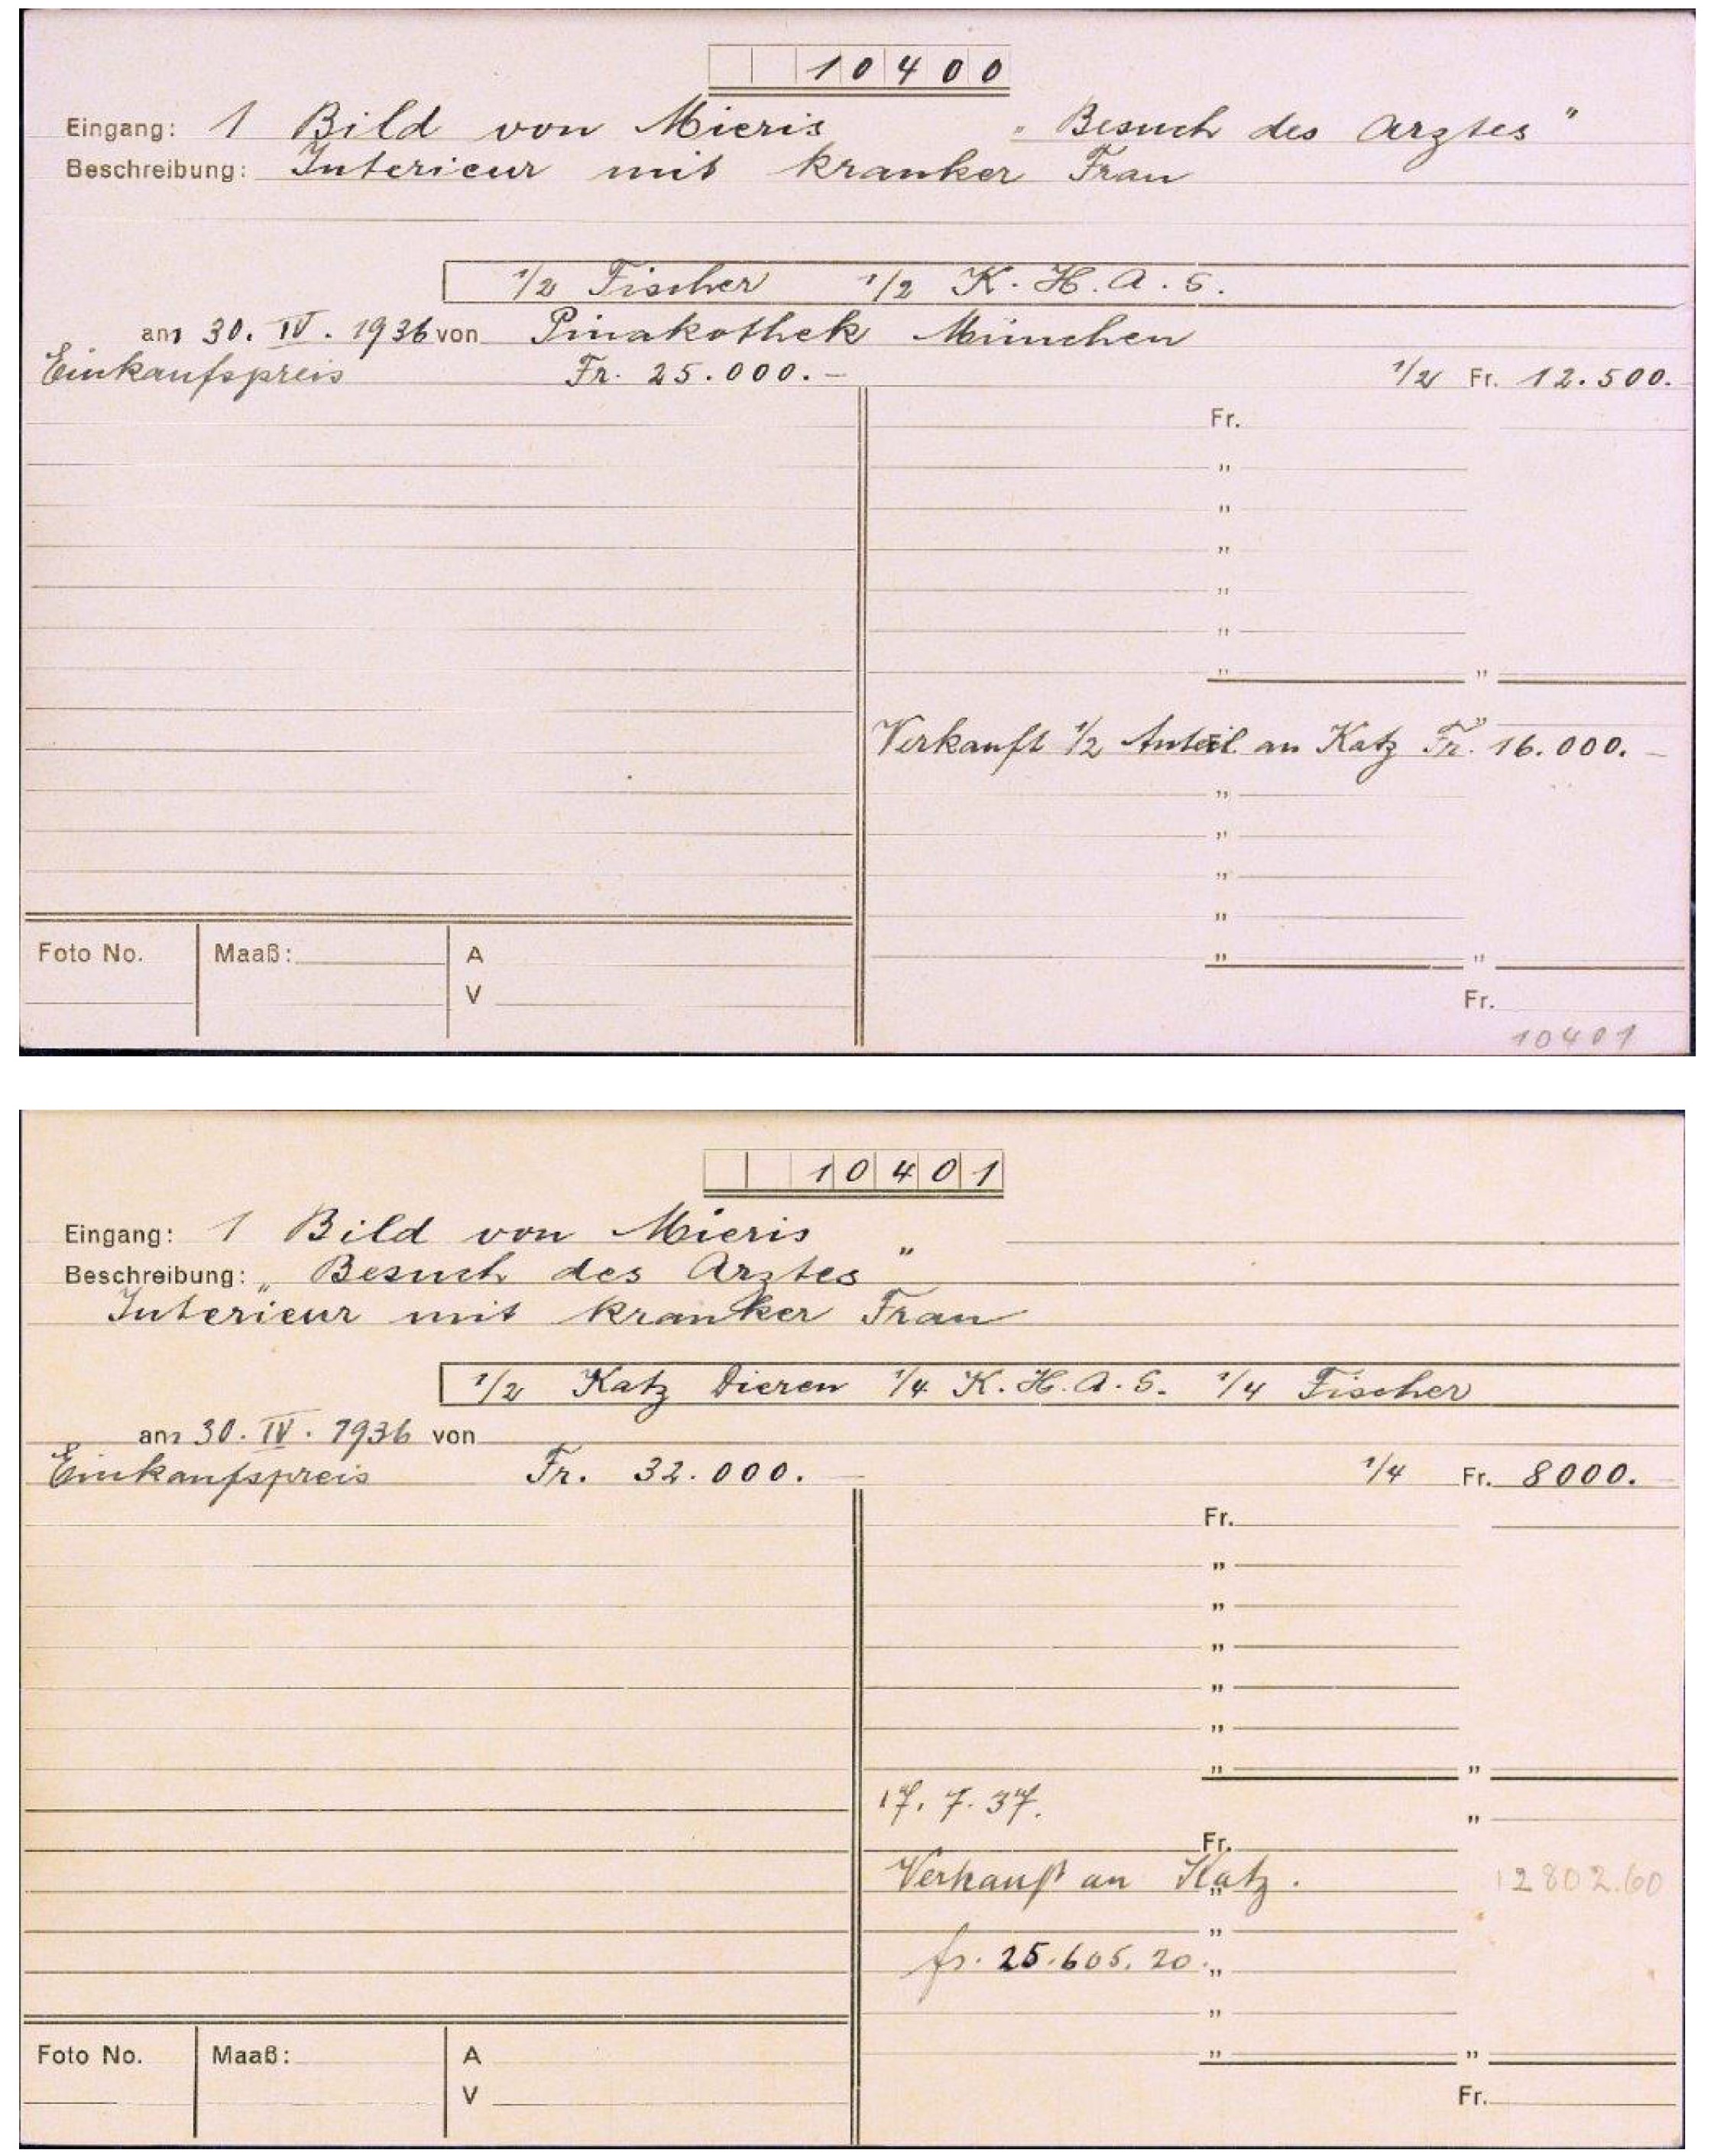 10400
Eingang: 1 Bild von Mieris „Besuch des Arztes"
Beschreibung: Interieur mit kranker Frau
1/2 Fischer 1/2 K. H. A. S.
am 30. IV. 1936 von Pinakothek München
Einkaufspreis Fr. 25.000.- 1/2 Fr. 12.500.
Fr.
"
"
"
"
"
" "
"
Verkauft 1/2 Anteil an Katz Fr. 16.000.-
"
"
"
"
" "
Foto No. Maaß: A
V
Fr.
10401
10401
Eingang: 1 Bild von Mieris
Beschreibung: „Besuch des Arztes"
Interieur mit kranker Frau
1/2 Katz Dieren 1/4 K. H. A. S. 1/4 Fischer
am 30. IV. 1936 von
Einkaufspreis Fr. 32.000.- 1/4 Fr. 8000.-
Fr.
"
"
"
"
"
" "
17. 7. 37. "
Fr.
Verkauft an Katz. " 12802.60
"
fr. 25.605.20. "
"
" "
Foto No. Maaß: A
V
Fr.